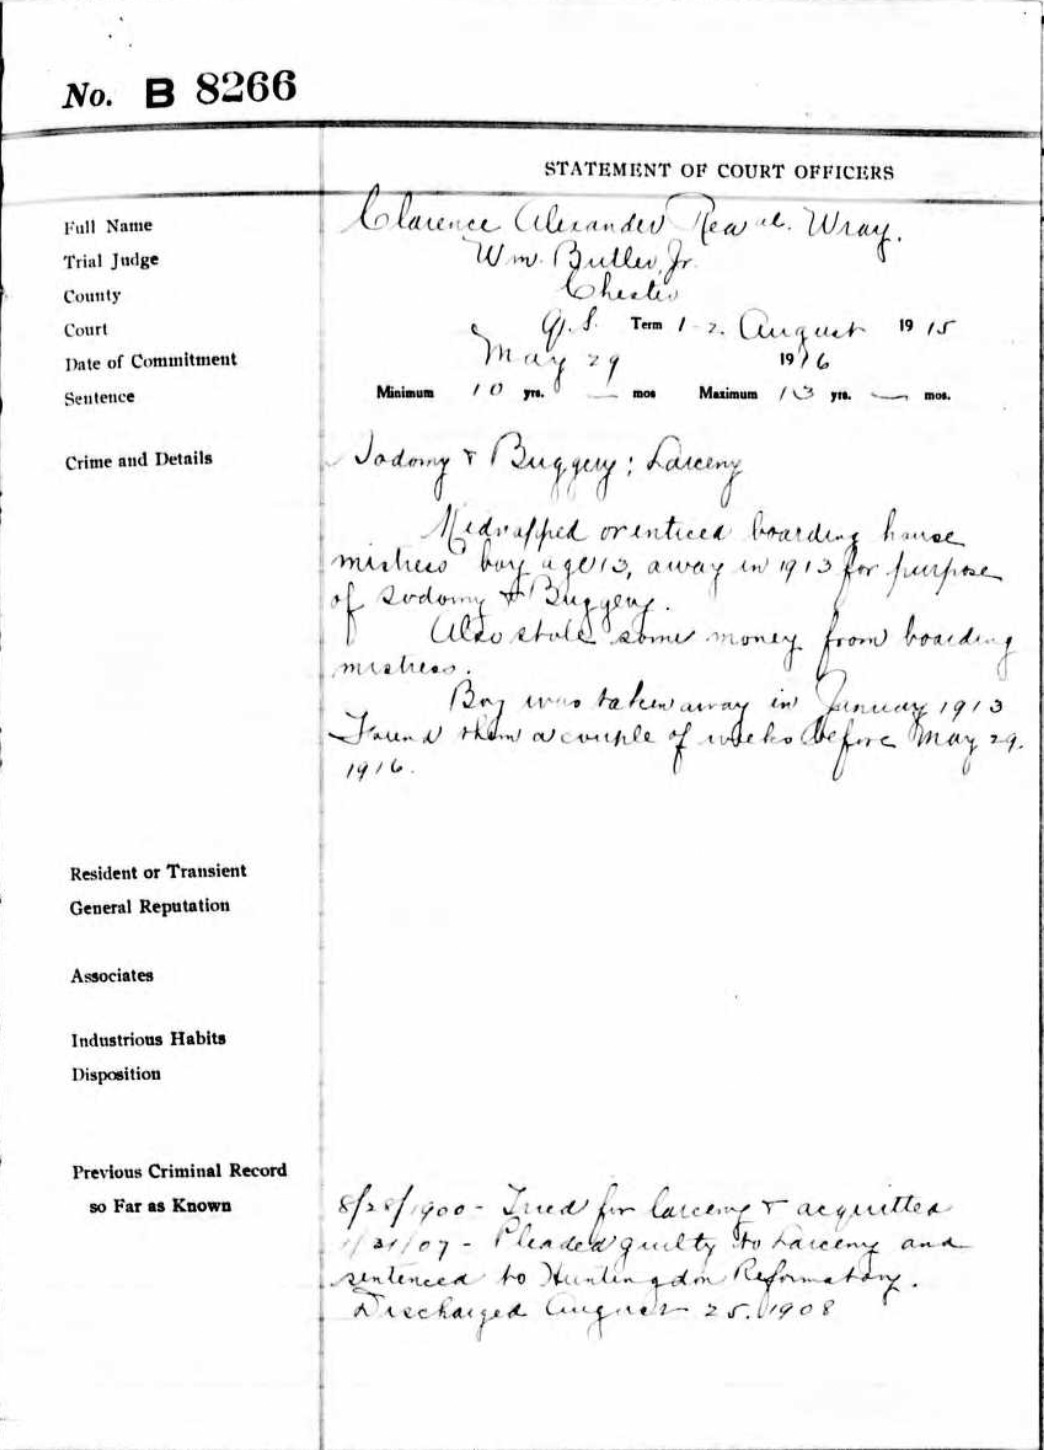 No. B 8266
STATEMENT OF COURT OFFICERS
Full Name Clarence Alexander Rea al. Wray.
Trial Judge Wm. Butler, Jr.
County Chester
Court Q.S. Term 1-2. August 1915
Date of Commitment May 29 1916
Sentence Minimum 10 yrs. — mos Maximum 13 yrs. — mos.
Crime and Details Sodomy & Buggery; Larceny
Kidnapped or enticed boarding house
mistress' boy age 13, away in 1913 for purpose
of Sodomy & Buggery.
Also stole some money from boarding
mistress.
Boy was taken away in January 1913
Found them a couple of weeks before May 29.
1916.
Resident or Transient
General Reputation
Associates
Industrious Habits
Disposition
Previous Criminal Record
so Far as Known 8/28/1900 - Tried for larceny & acquitted
/31/07 - Pleaded guilty to Larceny and
sentenced to Huntingdon Reformatory.
Discharged August 25. 1908